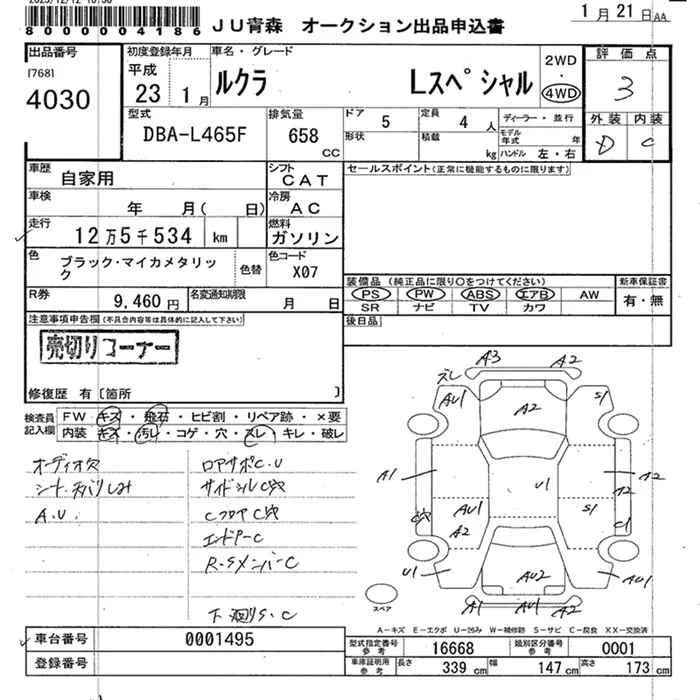 800000004186 JU青森 オークション出品申込書 1月21日AA
出品番号
[768]
4030
初度登録年月
平成
23 1月
車名・グレード
ルクラ Lスペシャル
2WD
・
4WD
評価点
3
外装 内装
D C
型式
DBA-L465F
排気量
658
CC
ドア 5
定員 4 人
形状
積載 kg
ディーラー・並行
モデル年式 年
ハンドル 左・右
車歴
自家用
シフト
CAT
セールスポイント(正常に機能するものに限ります)
車検
年 月( 日)
冷房
AC
走行
12万5千534 km
燃料
ガソリン
色
ブラック・マイカメタリック
色替
色コード
X07
装備品(純正品に限り○をつけてください)
新車保証書
PS PW ABS エアB AW
SR ナビ TV カワ
有・無
R券
9,460円
名変通知期限
月 日
後日品
注意事項申告欄(不具合内容等は具体的に記入して下さい)
売切りコーナー
修復歴 有〔箇所 〕
検査員記入欄
FW キズ・飛石・ヒビ割・リペア跡・×要
内装 キズ・汚レ・コゲ・穴・スレ・キレ・破レ
オーディオ欠
A.U
ロアサポC.U
サイドシルC穴
CフロアC穴
エンドアーC
R-SメンバーC
下廻りS.C
A3 A2
スレ
AU1 A2 S1
A1 U1 A2
A2
AU1 S1
C穴 A2 C1
U1 AU2 AU1
A1 AU1 A2
スペア
A-キズ E-エクボ U-凹み W-補修跡 S-サビ C-腐食 XX-交換済
車台番号 0001495
登録番号
型式指定番号参考 16668
類別区分番号参考 0001
車庫証明用参考
長さ 339 cm
幅 147 cm
高さ 173 cm